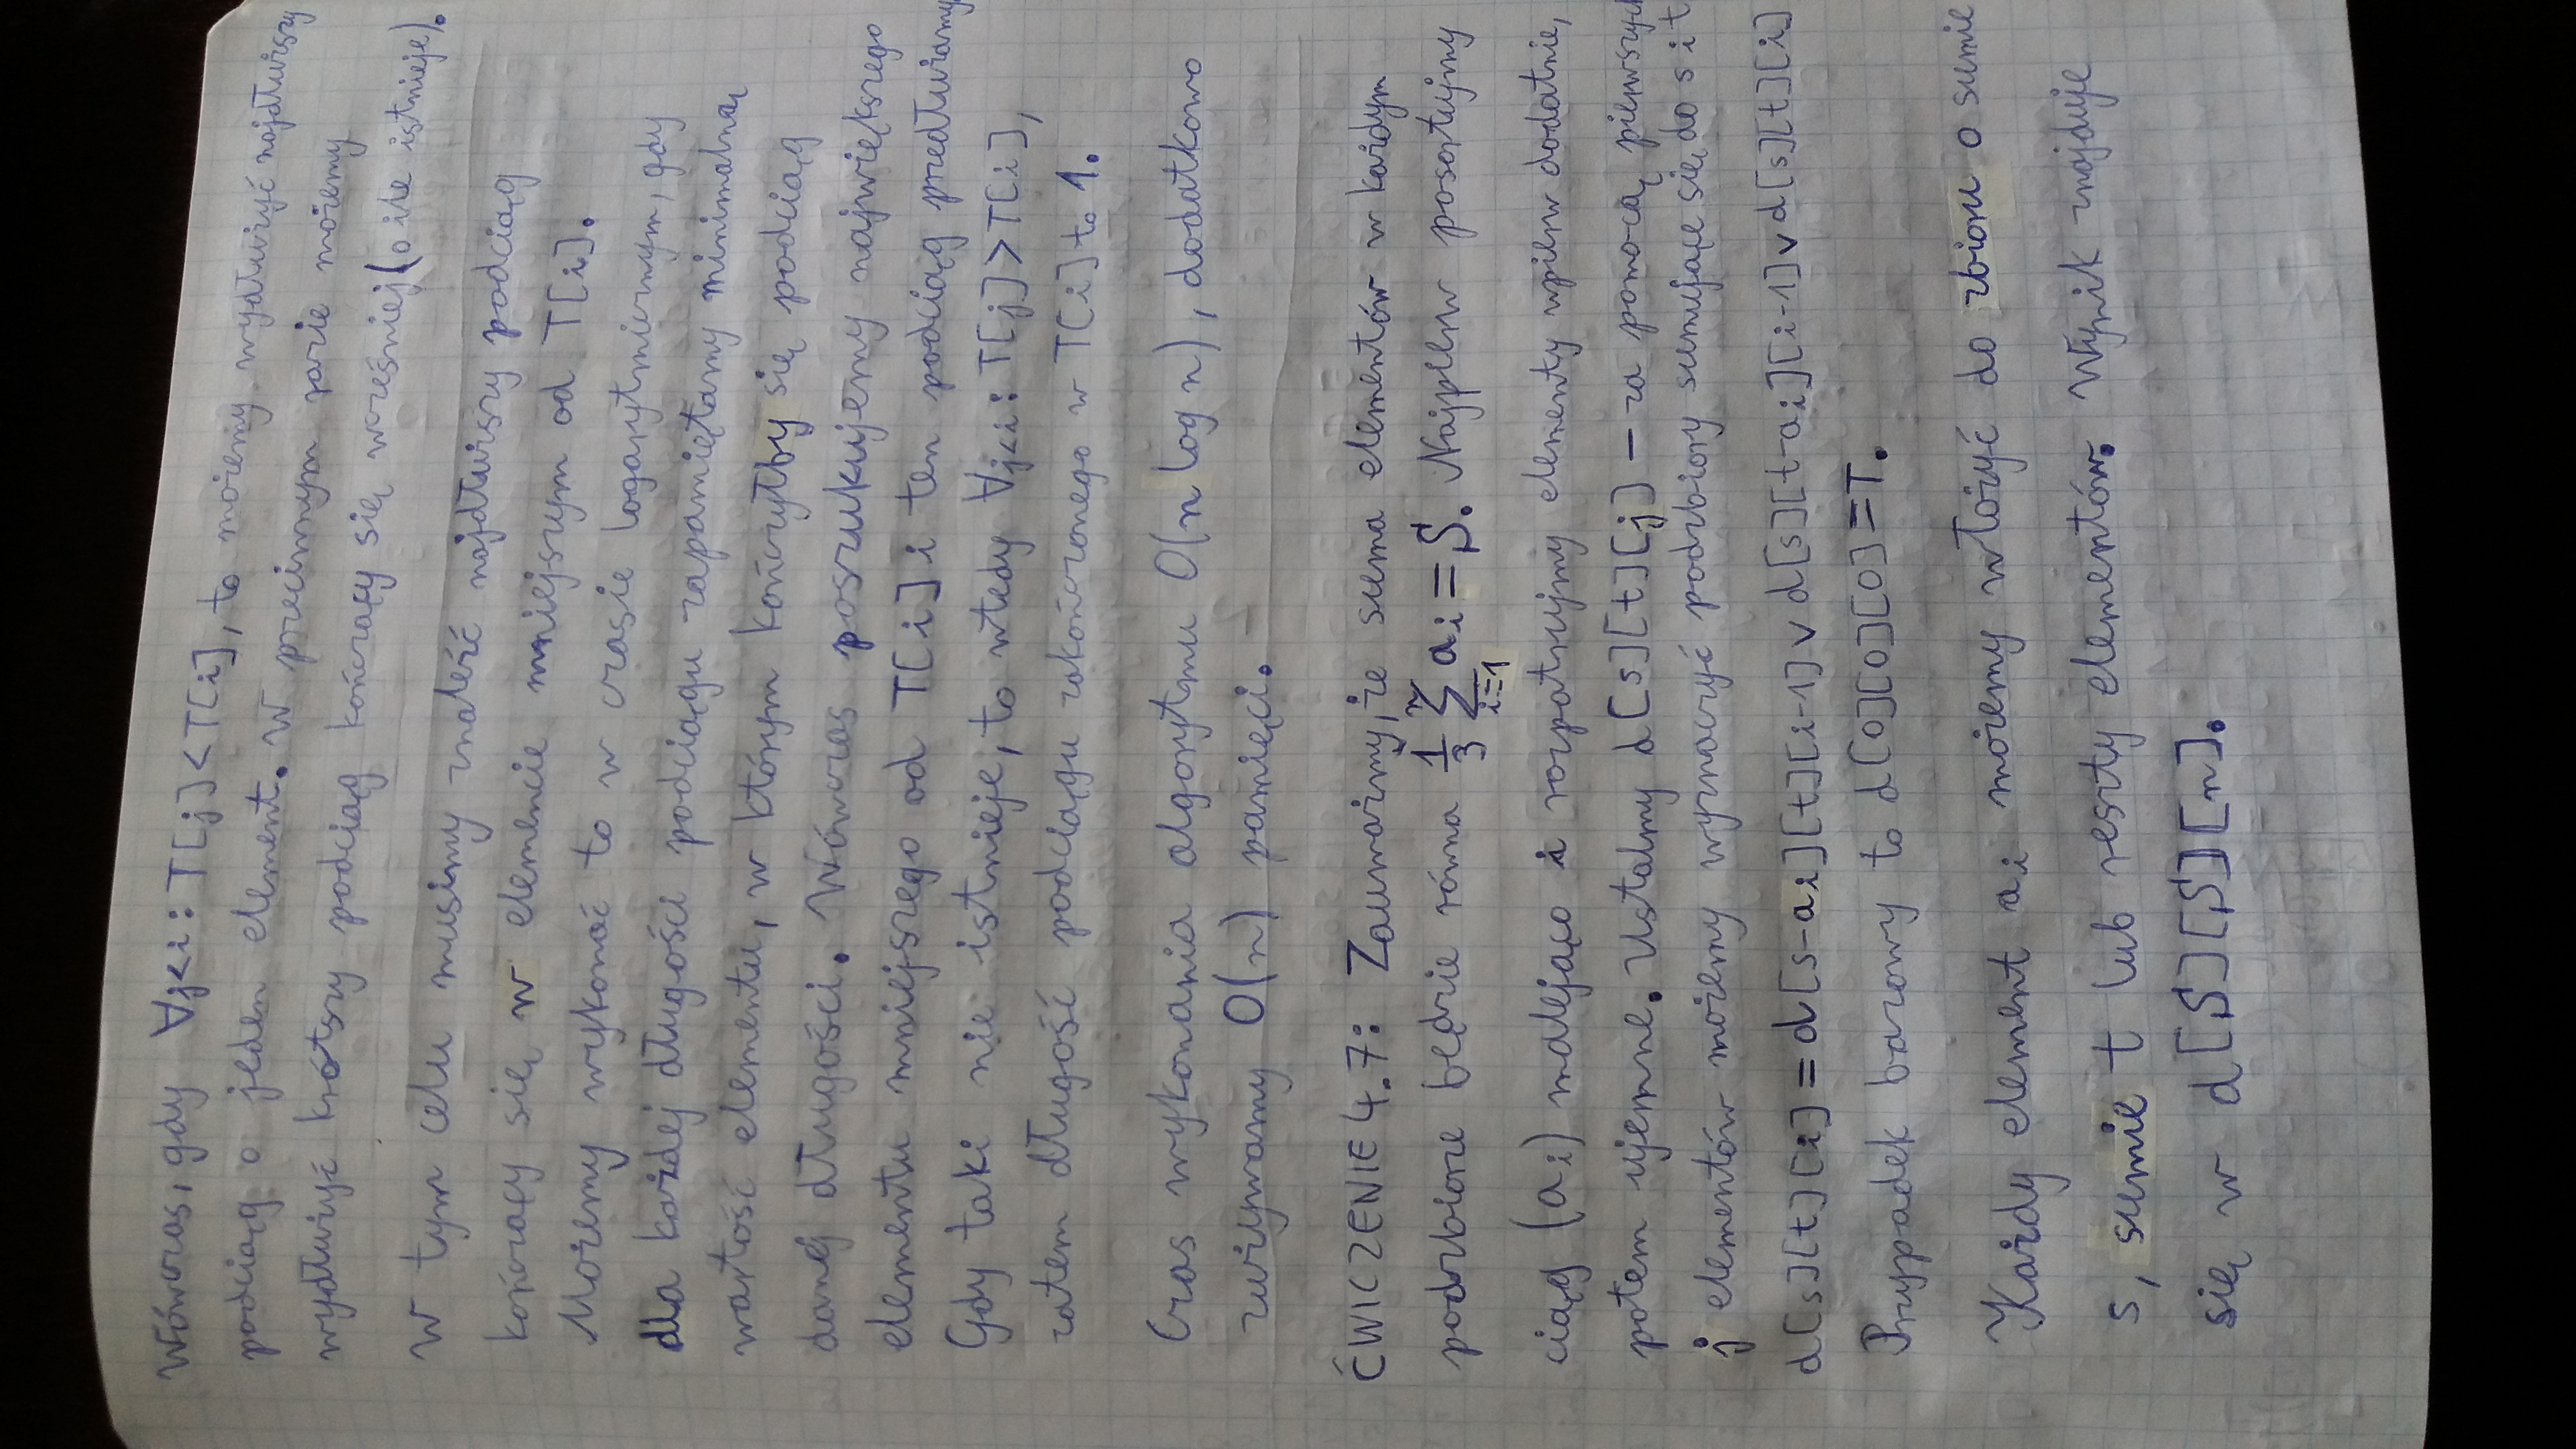 Wówczas, gdy ∀j<i : T[j]<T[i], to możemy wydłużyć najdłuższy
podciąg o jeden element. W przeciwnym razie możemy
wydłużyć krótszy podciąg kończący się wcześniej (o ile istnieje).
W tym celu musimy znaleźć najdłuższy podciąg
kończący się w elemencie mniejszym od T[i].
Możemy wykonać to w czasie logarytmicznym, gdy
dla każdej długości podciągu zapamiętamy minimalną
wartość elementu, w którym kończyłby się podciąg
danej długości. Wówczas poszukujemy największego
elementu mniejszego od T[i] i ten podciąg przedłużamy.
Gdy taki nie istnieje, to wtedy ∀j<i : T[j]>T[i],
zatem długość podciągu zakończonego w T[i] to 1.
Czas wykonania algorytmu O(n log n), dodatkowo
zużywamy O(n) pamięci.
ĆWICZENIE 4.7: Zauważmy, że suma elementów w każdym
podzbiorze będzie równa 1/3 ∑_{i=1}^{n} a_i = S. Najpierw posortujmy
ciąg (a_i) malejąco i rozpatrujmy elementy wpierw dodatnie,
potem ujemne. Ustalmy d[s][t][j] – za pomocą pierwszych
j elementów możemy wyznaczyć podzbiory sumujące się do s i t
d[s][t][i] = d[s-a_i][t][i-1] ∨ d[s][t-a_i][i-1] ∨ d[s][t][i]
Przypadek bazowy to d[0][0][0] = T.
Każdy element a_i możemy włożyć do zbioru o sumie
s, sumie t lub reszty elementów. Wynik znajduje
się w d[S][S][n].